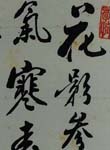 花影參
氣寒去